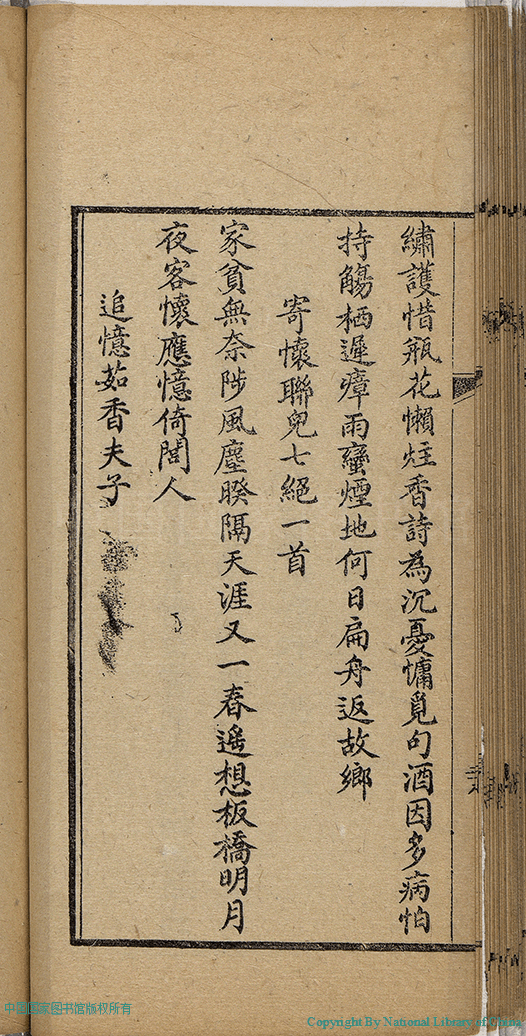 繡護惜瓶花懶炷香詩為沉憂慵覓句酒因多病怕
持觴栖遲瘴雨蠻煙地何日扁舟返故鄉
寄懷聯兒七絕一首
家貧無奈陟風塵睽隔天涯又一春遙想板橋明月
夜客懷應憶倚閭人
追憶茹香夫子
中国国家图书馆版权所有
Copyright By National Library of China